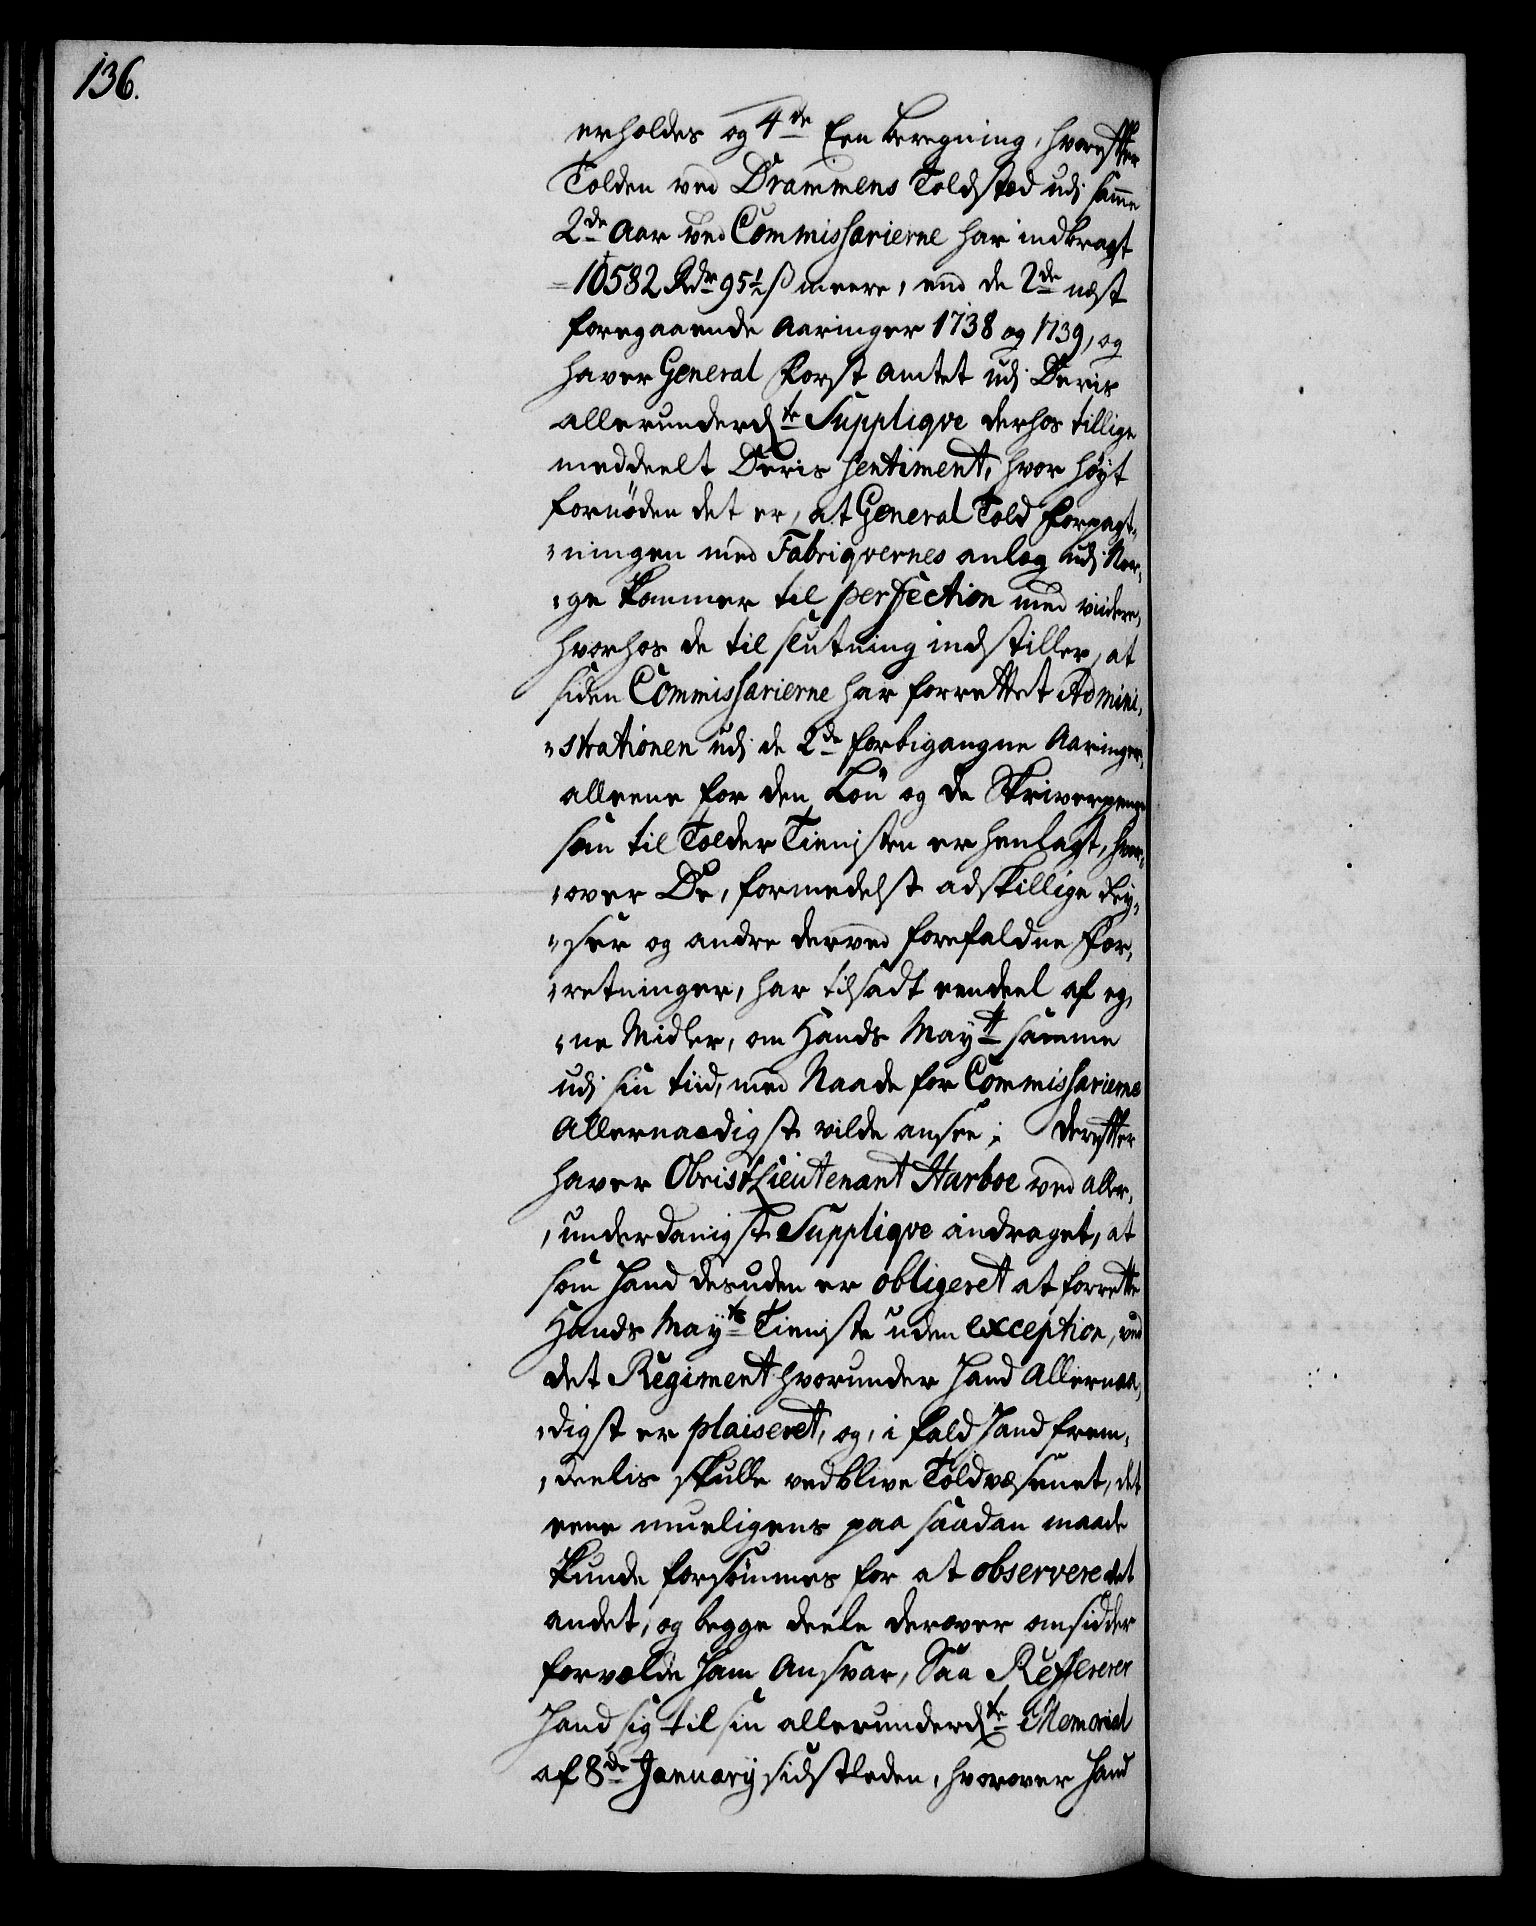 136.
erholdes og 4de Een beregning, hvorefter
Tolden ved Drammens Toldsted udj samme
2de Aar ved Commissarierne har indbragt
10582 Rdr 95½ ß meere, end de 2de nest
foregaaende Aaringer 1738 og 1739, og
haver General Forst Amtet udj Deris
allerunderdte Suppliqve derhos tillige
meddeelt Deris Sentiment, hvor høyt
fornøden det er, at General Told Forpagt-
ningen med Fabriqvernes anleg udj Nor-
ge kommer til perfection med viidere,
hvorhos de til slutning indstiller, at
siden Commissarierne har forrettet Admini-
strationen udj de 2de forbigangne Aaringer,
alleene for den Løn og de Skriverpenge
som til Tolder Tienisten er henlagt, hvor-
over De, formedelst adskillige Rey-
ser og andre derved forefaldne For-
retninger, har tilsadt eendeel af eg-
ne Midler, om Hands Mayt samme
udj sin tiid, med Naade for Commissarierne
Allernaadigst vilde ansee; Derefter
haver ObristLieutenant Harboe ved aller-
underdanigst Suppliqve andraget, at
som Hand desuden er obligeret at forrette
Hands Mayts Tieniste uden exception, ved
det Regiment hvorunder Hand Allernaa-
digst er plaiseret, og, i fald Hand frem-
deelis skulle vedblive Toldvæsenet, det
eene mueligens paa saadan maade
kunde forsømmes for at observere det
andet, og begge deele derover omsidder
forvolde ham Ansvar, Saa Refferer
Hand sig til sin allerunderdte Memorial
af 8de January sidstleden, hvorover Hand